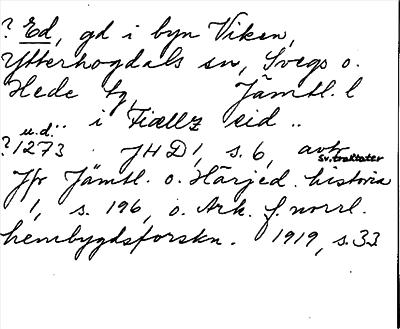 ? Ed, gd i byn Viken,
Ytterhogdals sn, Svegs o.
Hede tg, Jämtl. l
u.d.
¨ i Fiællz eid ¨
? 1273 JHD 1, s. 6, avtr
Sv. traktater
Jfr Jämtl. o. Härjed. historia
1, s. 196, o. Ark. f. norrl.
hembygdsforskn. 1919, s. 33